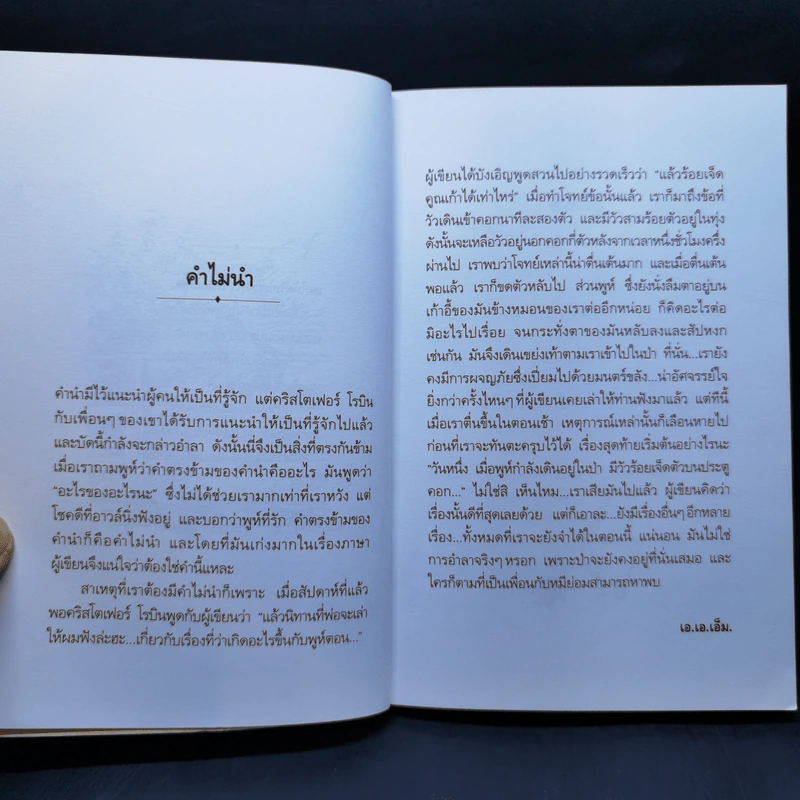 คำไม่นำ
คำนำมีไว้แนะนำผู้คนให้เป็นที่รู้จัก แต่คริสโตเฟอร์ โรบิน
กับเพื่อนๆ ของเขาได้รับการแนะนำให้เป็นที่รู้จักไปแล้ว
และบัดนี้กำลังจะกล่าวอำลา ดังนั้นนี่จึงเป็นสิ่งที่ตรงกันข้าม
เมื่อเราถามพูห์ว่าคำตรงข้ามของคำนำคืออะไร มันพูดว่า
“อะไรของอะไรนะ” ซึ่งไม่ได้ช่วยเรามากเท่าที่เราหวัง แต่
โชคดีที่อาวล์นิ่งฟังอยู่ และบอกว่าพูห์ที่รัก คำตรงข้ามของ
คำนำก็คือคำไม่นำ และโดยที่มันเก่งมากในเรื่องภาษา
ผู้เขียนจึงแน่ใจว่าต้องใช่คำนี้แหละ
สาเหตุที่เราต้องมีคำไม่นำก็เพราะ เมื่อสัปดาห์ที่แล้ว
พอคริสโตเฟอร์ โรบินพูดกับผู้เขียนว่า “แล้วนิทานที่พ่อจะเล่า
ให้ผมฟังล่ะฮะ...เกี่ยวกับเรื่องที่ว่าเกิดอะไรขึ้นกับพูห์ตอน...”
ผู้เขียนได้บังเอิญพูดสวนไปอย่างรวดเร็วว่า “แล้วร้อยเจ็ด
คูณเก้าได้เท่าไหร่” เมื่อทำโจทย์ข้อนั้นแล้ว เราก็มาถึงข้อที่
วัวเดินเข้าคอกนาทีละสองตัว และมีวัวสามร้อยตัวอยู่ในทุ่ง
ดังนั้นจะเหลือวัวอยู่นอกคอกกี่ตัวหลังจากเวลาหนึ่งชั่วโมงครึ่ง
ผ่านไป เราพบว่าโจทย์เหล่านี้น่าตื่นเต้นมาก และเมื่อตื่นเต้น
พอแล้ว เราก็ขดตัวหลับไป ส่วนพูห์ ซึ่งยังนั่งลืมตาอยู่บน
เก้าอี้ของมันข้างหมอนของเราต่ออีกหน่อย ก็คิดอะไรต่อ
มิอะไรไปเรื่อย จนกระทั่งตาของมันหลับลงและสัปหงก
เช่นกัน มันจึงเดินเขย่งเท้าตามเราเข้าไปในป่า ที่นั่น...เรายัง
คงมีการผจญภัยซึ่งเปี่ยมไปด้วยมนตร์ขลัง...น่าอัศจรรย์ใจ
ยิ่งกว่าครั้งไหนๆ ที่ผู้เขียนเคยเล่าให้ท่านฟังมาแล้ว แต่ทีนี้
เมื่อเราตื่นขึ้นในตอนเช้า เหตุการณ์เหล่านั้นก็เลือนหายไป
ก่อนที่เราจะทันตะครุบไว้ได้ เรื่องสุดท้ายเริ่มต้นอย่างไรนะ
“วันหนึ่ง เมื่อพูห์กำลังเดินอยู่ในป่า มีวัวร้อยเจ็ดตัวบนประตู
คอก...” ไม่ใช่สิ เห็นไหม...เราเสียมันไปแล้ว ผู้เขียนคิดว่า
เรื่องนั้นดีที่สุดเลยด้วย แต่ก็เอาละ...ยังมีเรื่องอื่นๆ อีกหลาย
เรื่อง...ทั้งหมดที่เราจะยังจำได้ในตอนนี้ แน่นอน มันไม่ใช่
การอำลาจริงๆ หรอก เพราะป่าจะยังคงอยู่ที่นั่นเสมอ และ
ใครก็ตามที่เป็นเพื่อนกับหมีย่อมสามารถหาพบ
เอ.เอ.เอ็ม.